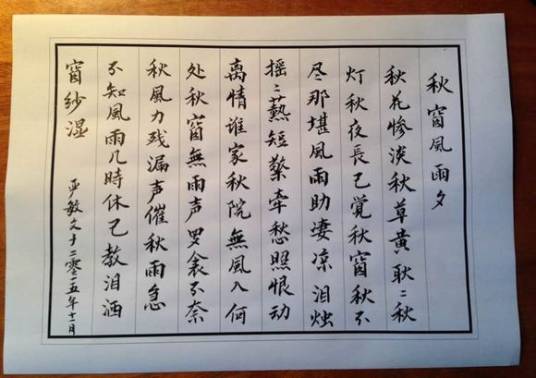 秋窗風雨夕
秋花惨淡秋草黄耿〻秋
灯秋夜長已覚秋窗秋不
尽那堪風雨助凄凉泪烛
摇〻爇短檠牵愁照恨动
离情谁家秋院無風入何
处秋窗無雨声罗衾不奈
秋風力残漏声催秋雨急
不知風雨几時休已教泪洒
窗纱湿
严敏文于二零一五年十二月